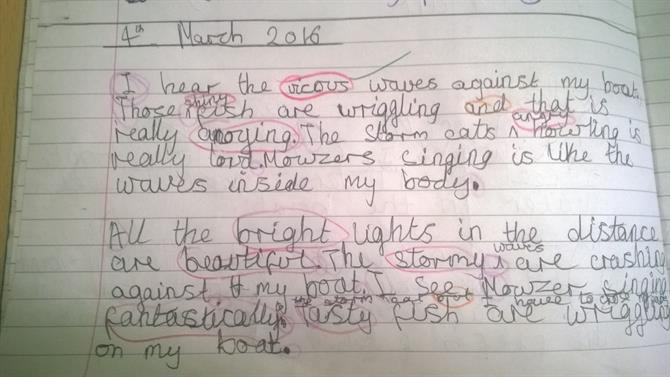 4th March 2016
I hear the vicous waves against my boat.
Those shiny fish are wriggling and that is
really anoying. The storm cats angry howling is
really loud. Mowzers singing is like the
waves inside my body.
All the bright lights in the distance
are beautiful. The stormy waves are crashing
against my boat. I see Mowzer singing
fantastically. to the storm cat but I have to
tasty fish are wriggling
on my boat.